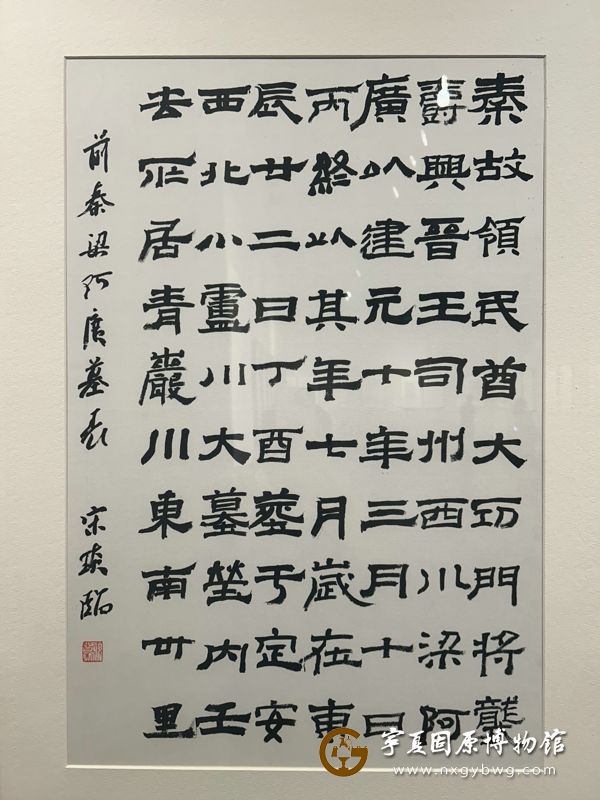 秦故領民酋大功門將龍
爵興晉王司州西川梁阿
廣以建元十年三月十日
丙終以其年七月歲在東
辰廿二日丁酉葬于定安
西北小盧川大墓塋內壬
去所居青巖川東南卅里
前秦梁阿廣墓表 宋琰臨
宁夏固原博物馆
www.nxgybwg.com